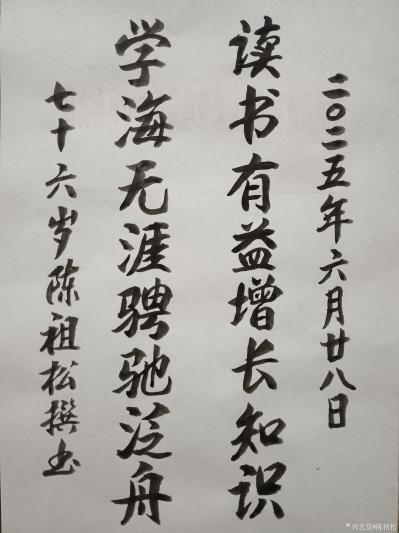 二〇二五年六月廿八日
读书有益增长知识
学海无涯骋驰泛舟
七十六岁陈祖松撰书